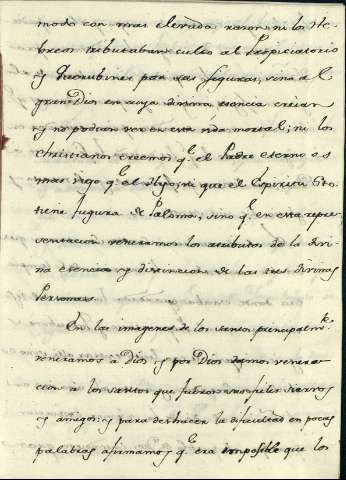 modo con mas elevada razon; ni los He-
breos tributaban culto al Propiciatorio
y Querubines por sus figuras, sino al
gran Dios en cuya divina esencia creian
y no podian ver en esta vida mortal; ni los
christianos creemos q.e el Padre eterno es
mas viejo q.e el Hijo, ni que el Espiritu Sto
tiene figura de Paloma, sino q.e en esta repre-
sentacion veneramos los atributos de la divi-
na esencia y distincion de las tres divinas
Personas.
En las imagenes de los santos principalm.te
veneramos à Dios y por Dios damos venera-
cion à los santos que fueron sus fieles siervos
y amigos; y para deshacer la dificultad en pocas
palabras afirmamos q.e era imposible que los